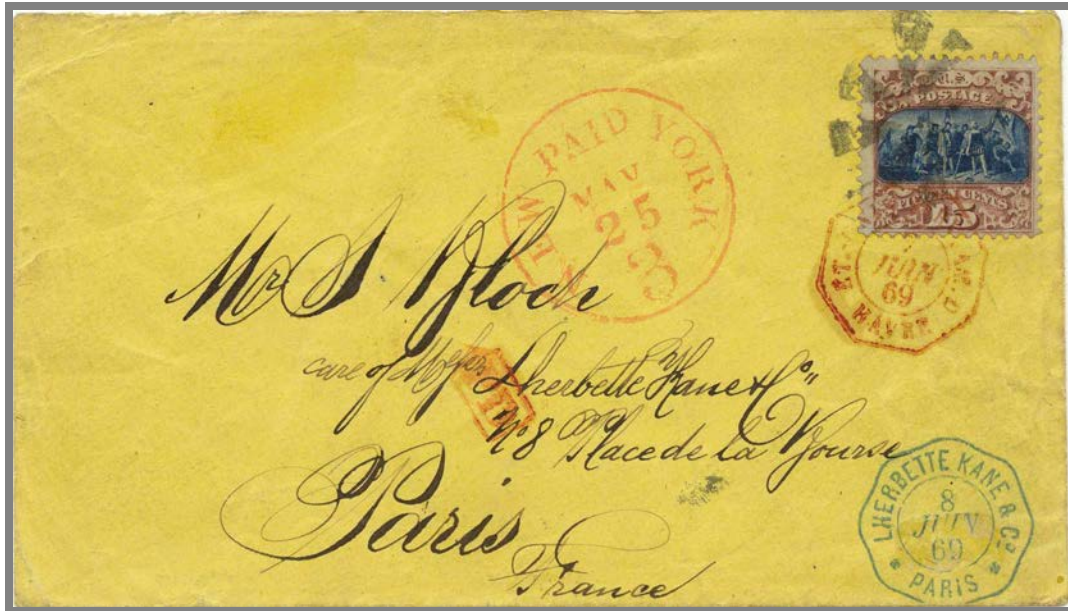 U.S.
POSTAGE
FIFTEEN CENTS
15
NEW PAID YORK
MAY
25
3
JUIN
69
LE HAVRE
Mr S Bloch
care of Messrs Lherbette Kane & Co
No 8 Place de la Bourse
Paris
France
LHERBETTE KANE & Co
8
JUIN
69
* PARIS *